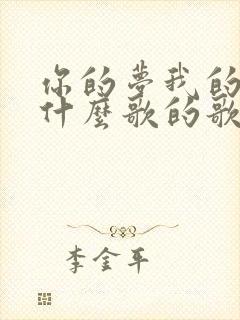 你的梦我的
什麼歌的歌
李金平